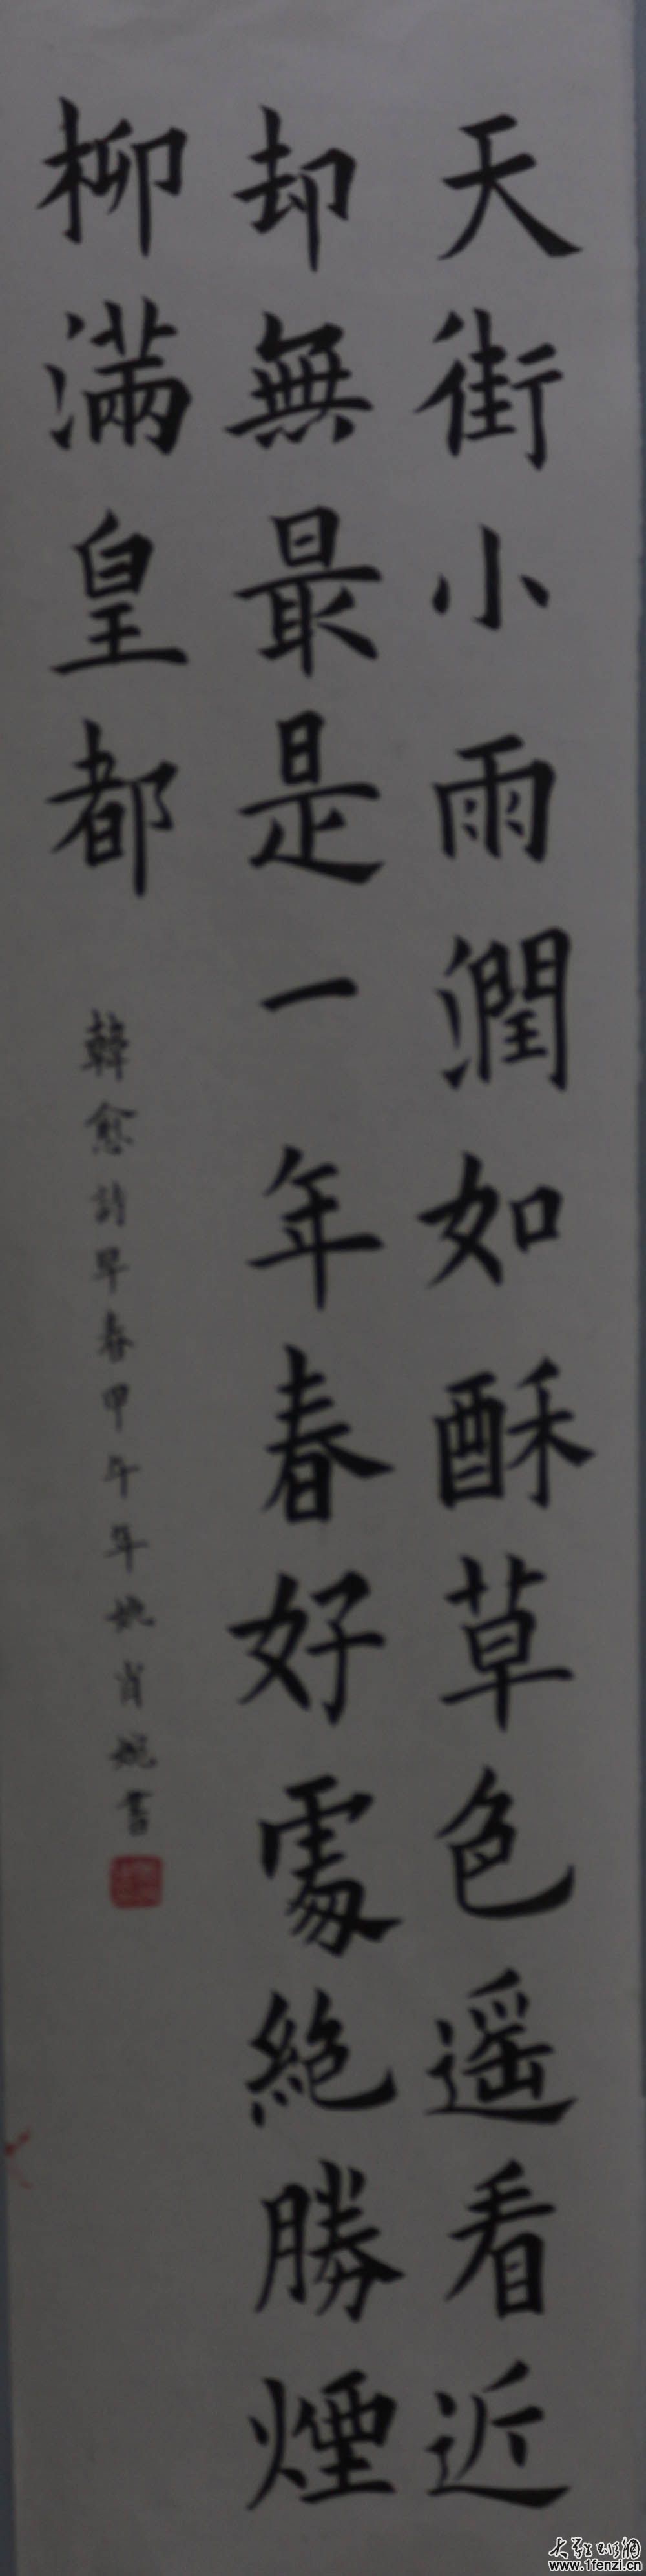 天街小雨潤如酥草色遥看近
却無最是一年春好處絶勝煙
柳滿皇都
韓愈詩早春甲午年姚肖婉書
www.1fenzi.cn